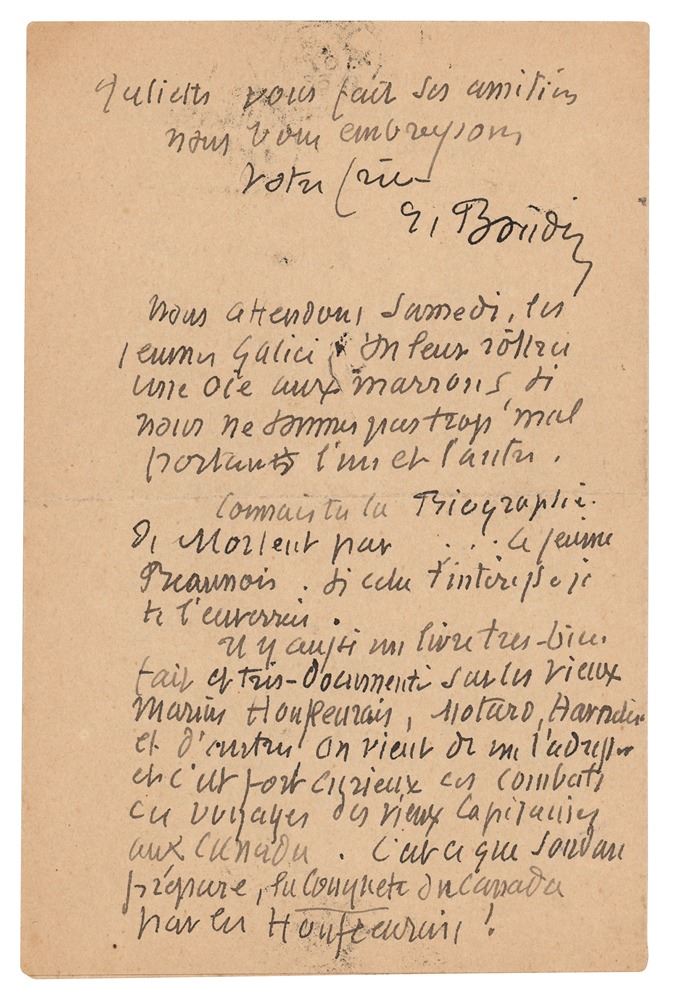 Juliette vous fait ses amitiés
nous vous embrassons
Votre frère
E. Boudin
Nous attendons Samedi, les
jeunes On leur rôtira
une oie aux marrons, si
nous ne sommes pas trop mal
portants l'un et l'autre.
Connais tu la Biographie
de par . . . Ce jeune
. Si cela t'intéresse je
te l'enverrai.
Il y aussi un livre très-bien
fait et très-documenté sur les vieux
Marins Honfleurais, Motard,
et d'autres On vient de me l'adresser
et c'est fort curieux ces combats
ces voyages des vieux Capitaines
aux Canada. C'est ce que Soudan
prépare, la Conquete du Canada
par les Honfleurais!